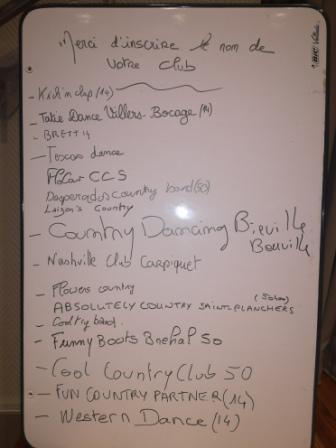 Merci d'inscrire le nom de
votre club
- Kick'n clap (14)
- Tatie Dance Villers-Bocage (14)
- BRETT 14
- Texas dance
CCS
Desperados country band (50)
Laizon's Country
- Country Dancing Bieville
Beuville
- Nashville Club Carpiquet
- Flowers country
(50400)
ABSOLUTELY COUNTRY SAINT PLANCHERS
- Country band.
- Funny Boots Brehal 50
- Cool Country Club 50
- FUN COUNTRY PARTNER (14)
- Western Dance (14)